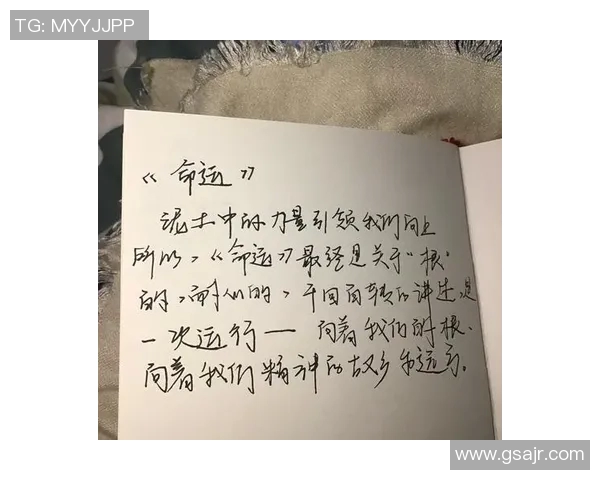 TG: MYYJJPP
《命运》
泥土中的力量引领我们向上
所以，《命运》最终是关于"根"
的，耐心的，千回百转的讲述，是
一次运行——向着我们的根、
向着我们精神的故乡和远方。
www.gsajr.com